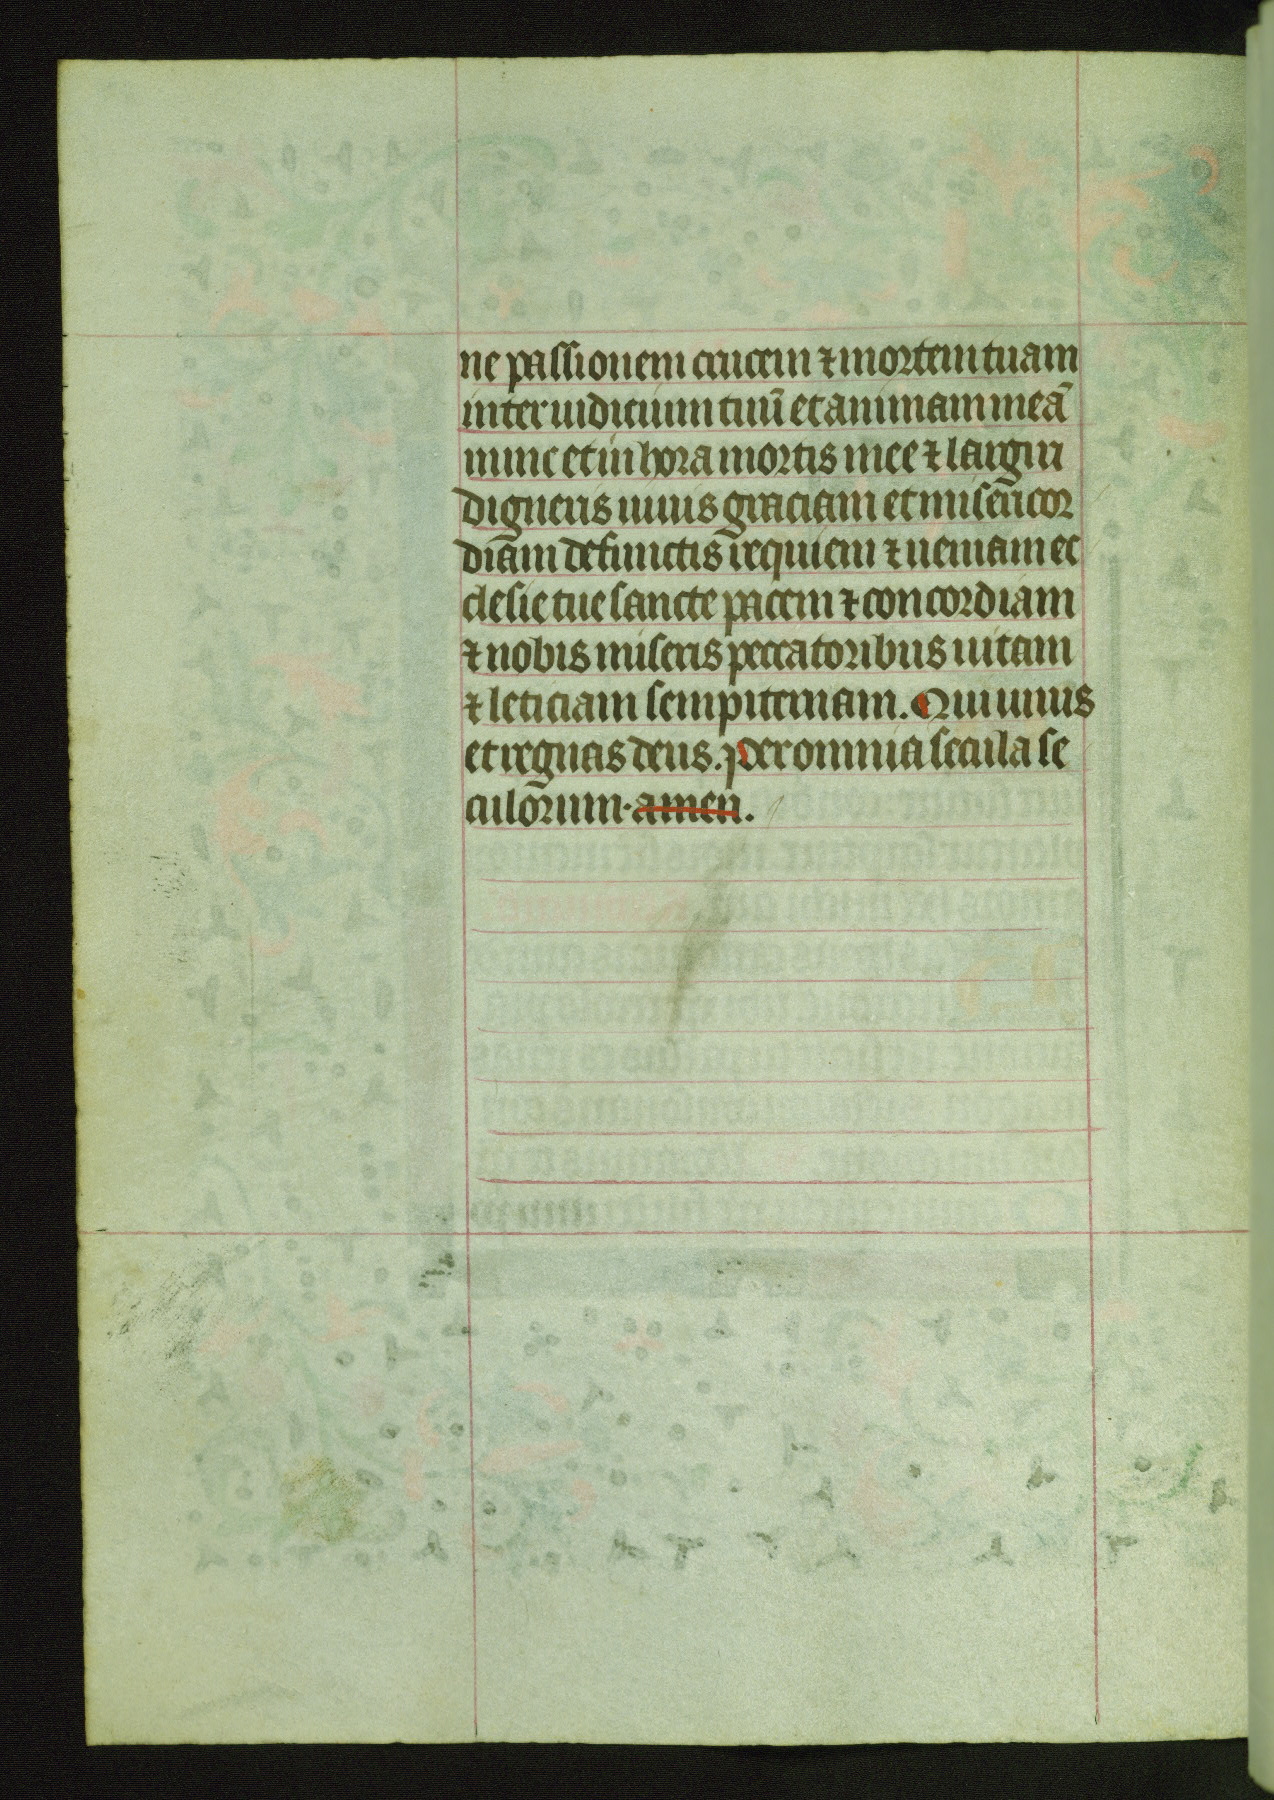 ne passionem crucem ⁊ mortem tuam
inter iudicium tuū et animam meā
nunc et in hora mortis mee ⁊ largiri
digneris uiuis graciam et misericor
diam defunctis requiem ⁊ ueniam ec
clesie tue sancte pacem ⁊ concordiam
⁊ nobis miseris peccatoribus uitam
⁊ leticiam sempiternam. Qui uiuis
et regnas deus. Per omnia secula se
culorum. amen.